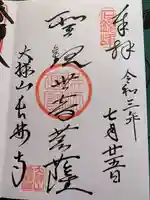 奉拝
令和三年
七月廿五日
聖観世音菩薩
大猿山長安寺